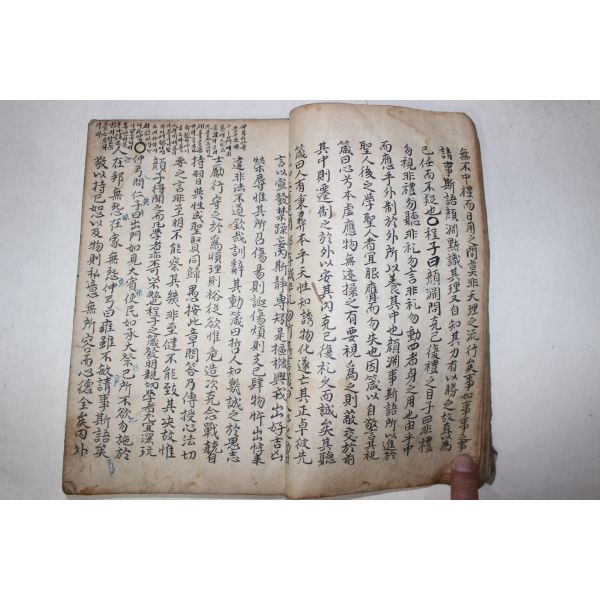 無不中禮而日用之間莫非天理之流行矣事如事事之事
請事斯語顏淵默識其理又自知其力有以勝之故直以為
己任而不疑也〇程子曰顏淵問克己復禮之目子曰非禮
勿視非禮勿聽非禮勿言非禮勿動四者身之用也由乎中
而應乎外制於外所以養其中也顏淵事斯語所以進於
聖人後之學聖人者宜服膺而勿失也因箴以自警其視
箴曰心兮本虛應物無迹操之有要視為之則蔽交於前
其中則遷制之於外以安其內克己復禮久而誠矣其聽
箴曰人有秉彝本乎天性知誘物化遂亡其正卓彼先
言以宣發禁躁妄內斯靜專矧是樞機興戎出好吉凶
榮辱惟其所召傷易則誕傷煩則支己肆物忤出悖來
違非法不道欽哉訓辭其動箴曰哲人知幾誠之於思志
士勵行守之於為順理則裕從欲惟危造次克念戰兢自
持習與性成聖賢同歸愚按此章問答乃傳授心法切
要之言非至明不能察其幾非至健不能致其決故惟
顏子得聞之而凡學者亦不可以不勉也程子之箴發明親切學者尤宜深玩
〇仲弓問仁子曰出門如見大賓使民如承大祭己所不欲勿施於
人在邦無怨在家無怨仲弓曰雍雖不敏請事斯語矣
敬以持己恕以及物則私意無所容而心德全矣內外